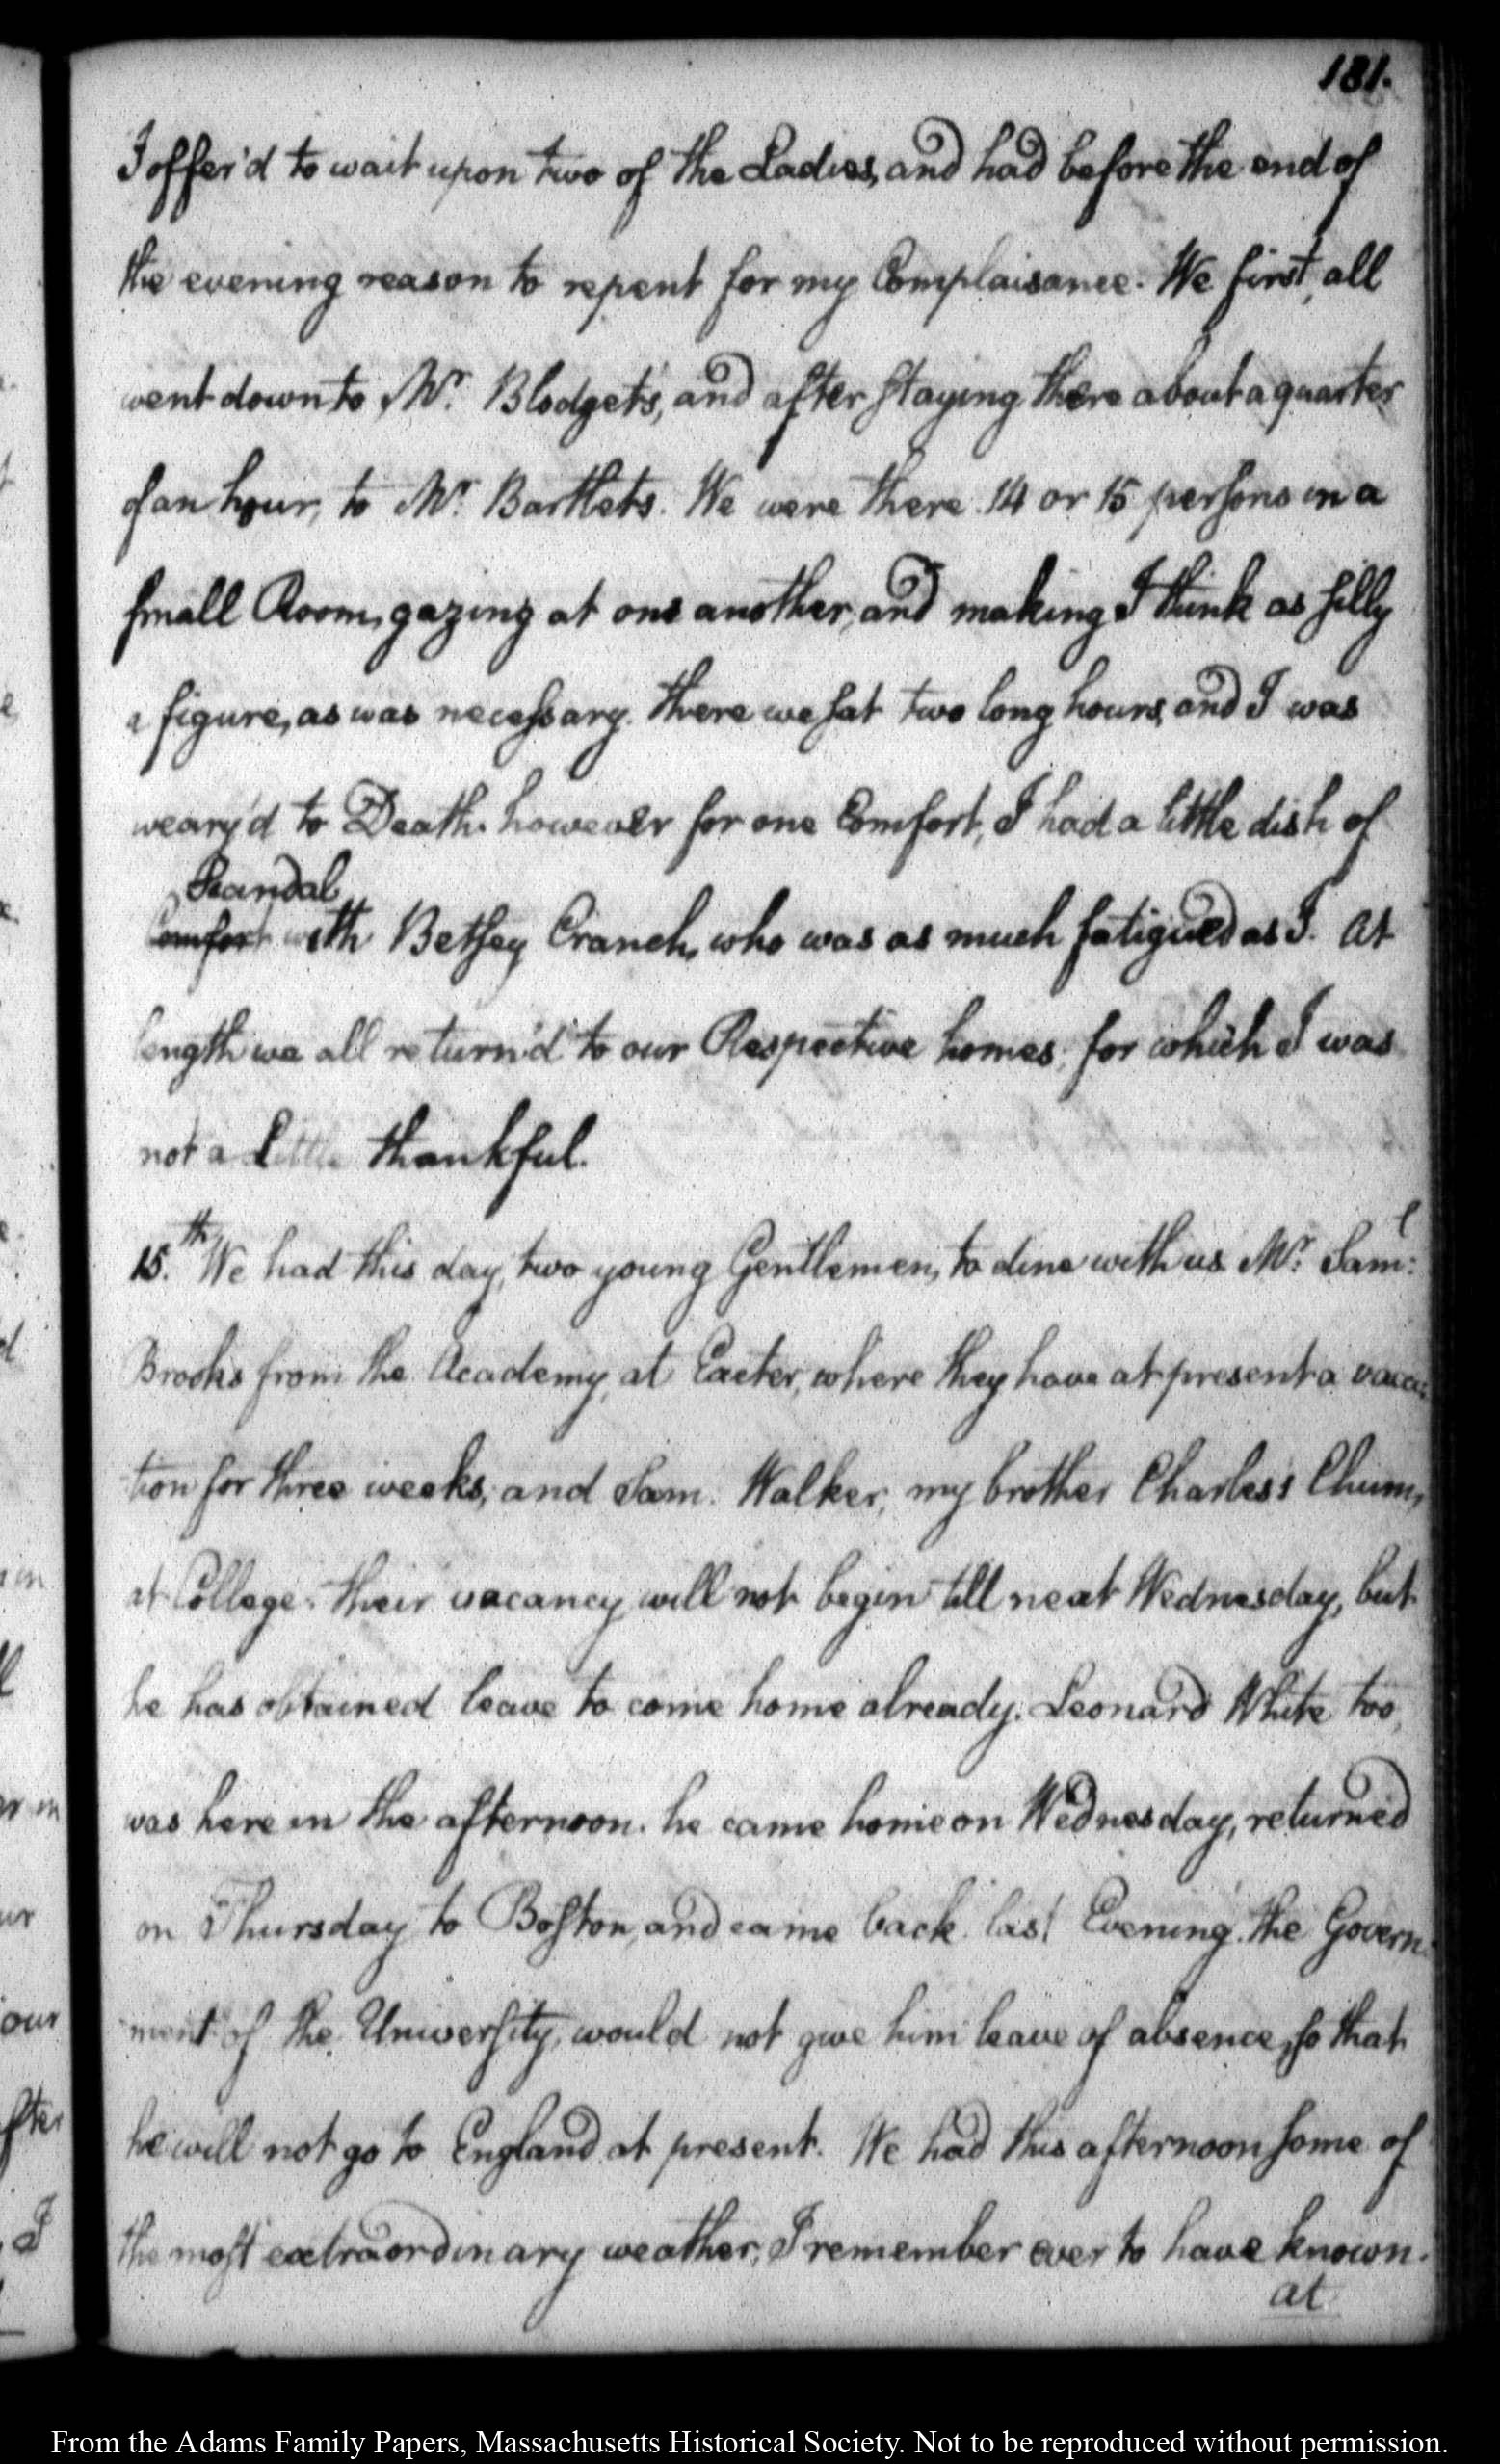 181.
I offer'd to wait upon two of the Ladies, and had before the end of
the evening reason to repent for my Complaisance. We first, all
went down to Mr. Blodget's, and after staying there about a quarter
of an hour, to Mr. Bartlets. We were there 14 or 15 persons in a
small Room, gazing at one another, and making I think as silly
a figure, as was necessary. There we sat two long hours, and I was
weary'd to Death. however for one Comfort, I had a little dish of
Scandal
Comfort with Betsey Cranch, who was as much fatigued as I. At
length we all return'd to our Respective homes, for which I was
not a Little thankful.
15.th We had this day, two young Gentlemen, to dine with us Mr. Saml:
Brooks from the Academy, at Exeter, where they have at present a vaca-
tion for three weeks; and Sam. Walker, my brother Charles's Chum,
at College. Their vacancy will not begin till next Wednesday, but
he has obtained leave to come home already. Leonard White too,
was here in the afternoon. he came home on Wednesday, returned
on Thursday to Boston, and came back last Evening. the Govern-
ment of the University, would not give him leave of absence, so that
he will not go to England at present. We had this afternoon some of
the most extraordinary weather, I remember ever to have known.
at
From the Adams Family Papers, Massachusetts Historical Society. Not to be reproduced without permission.